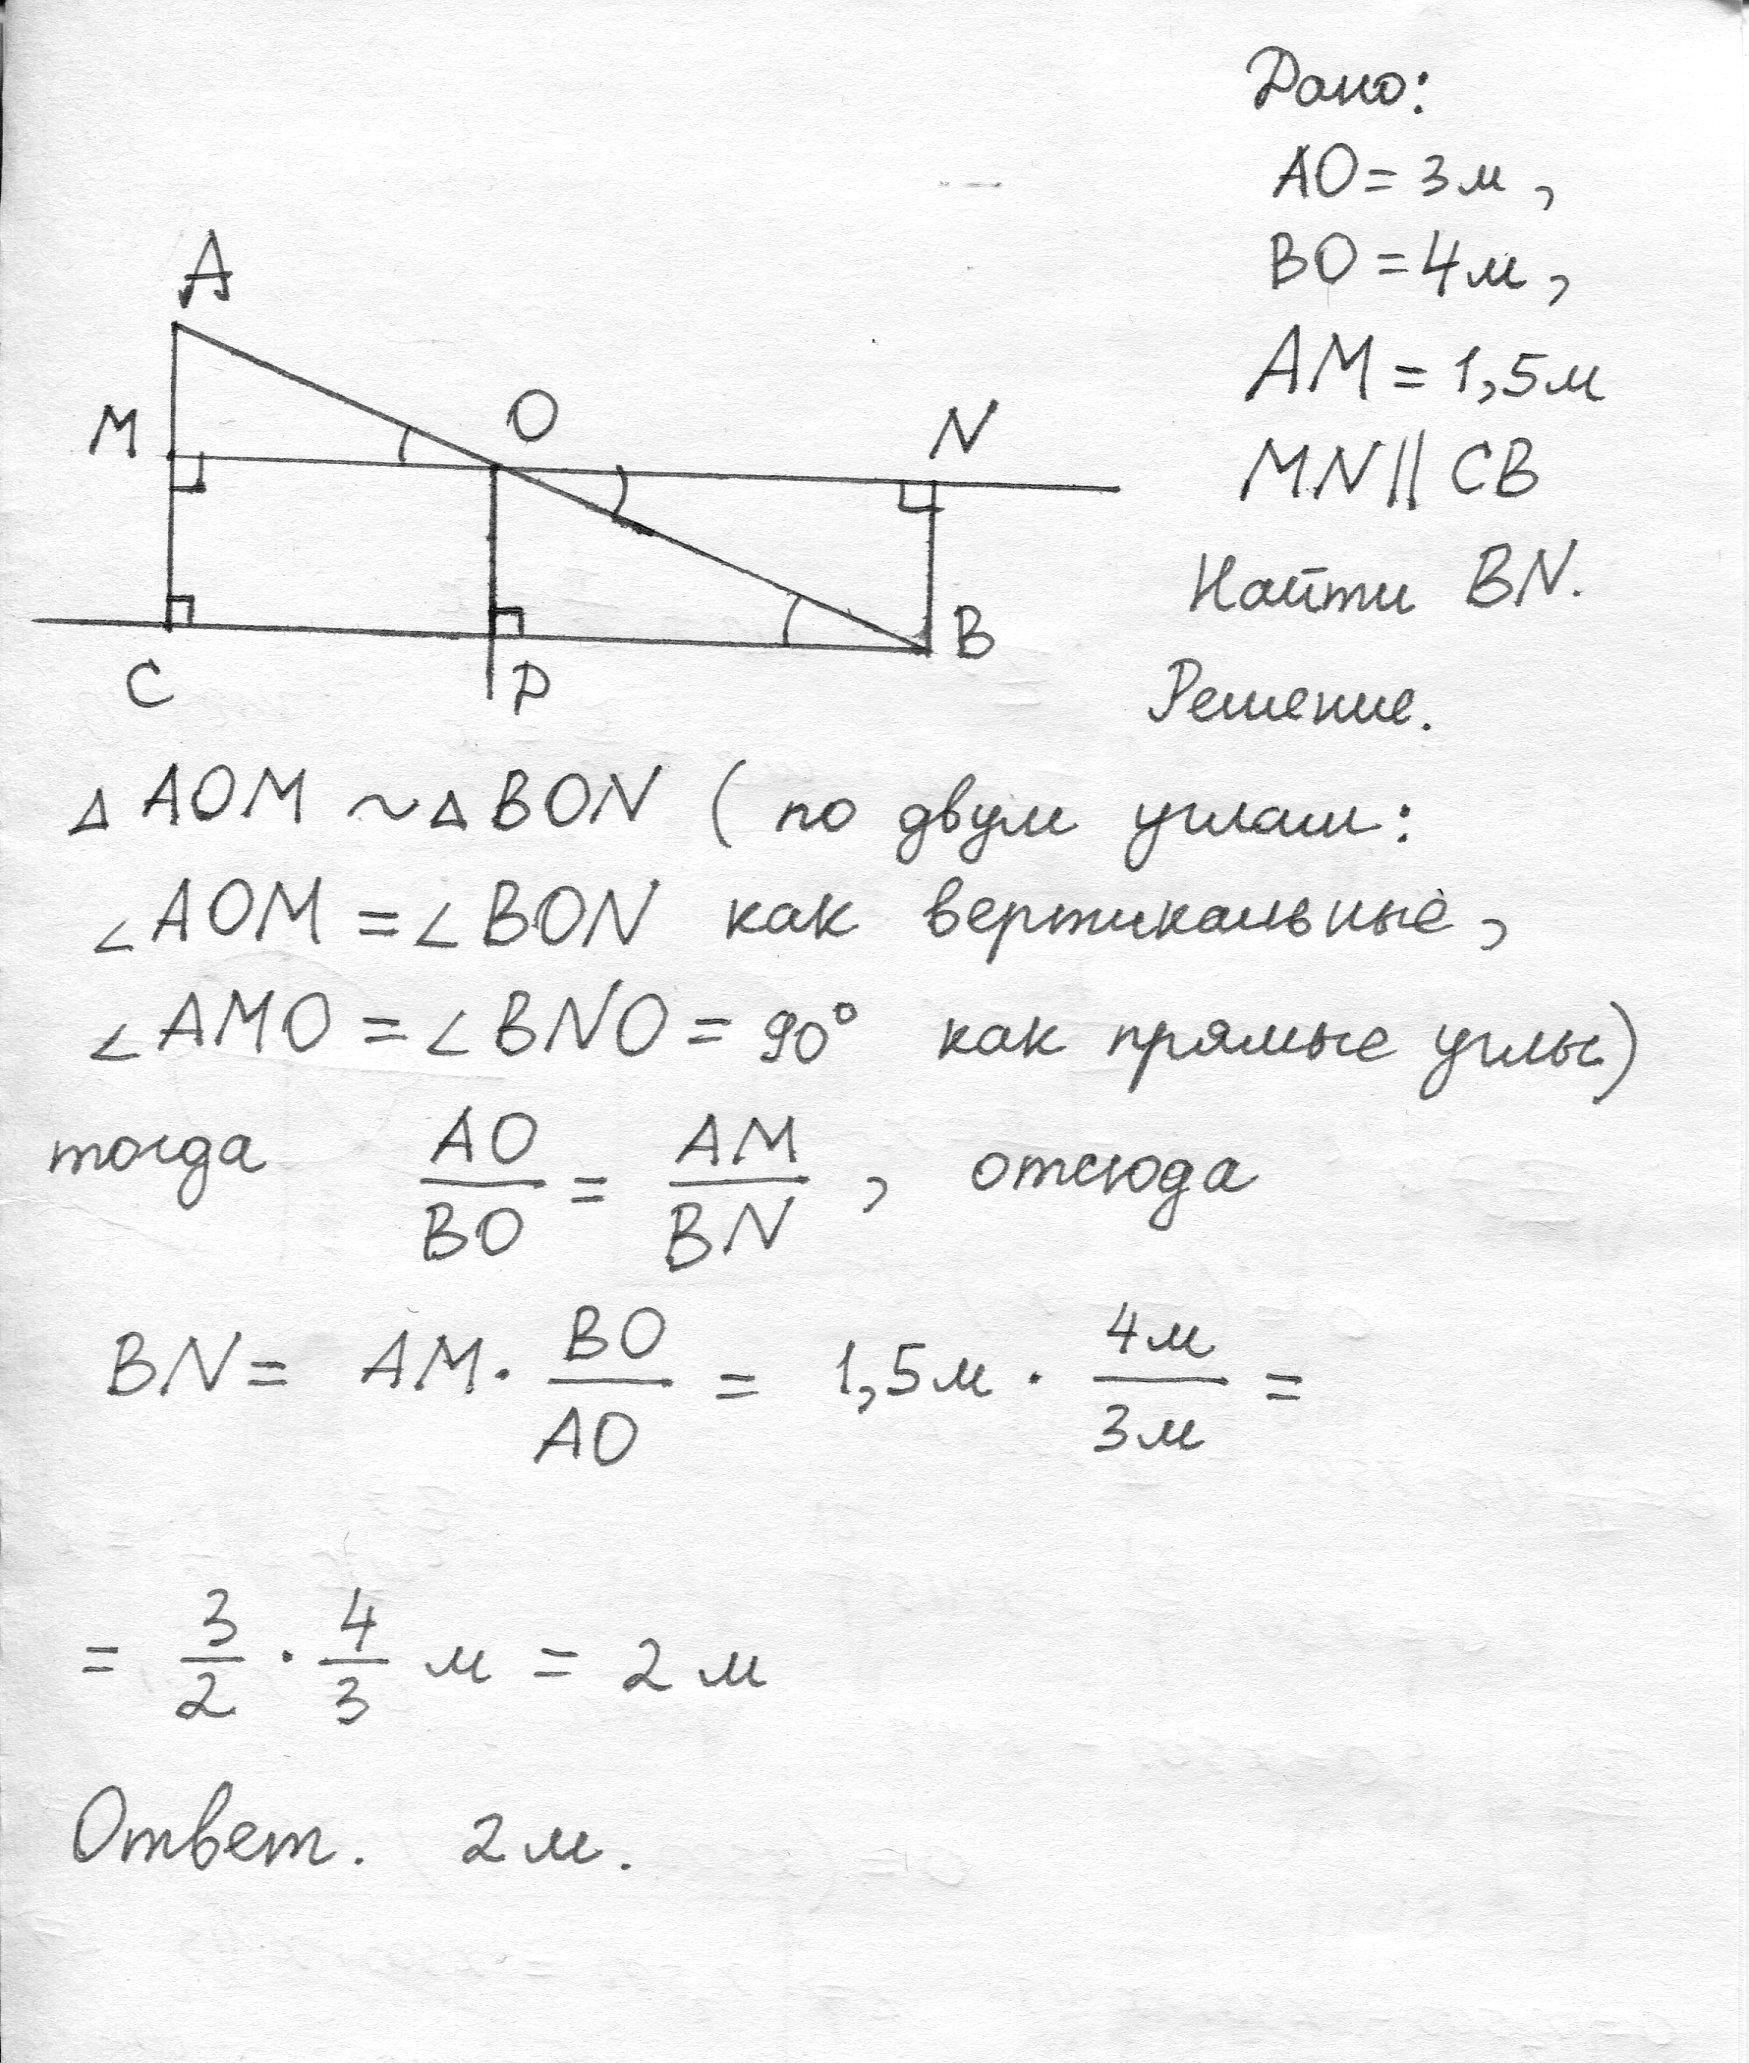 Дано:
AO = 3м,
BO = 4м,
AM = 1,5м
MN || CB
Найти BN.
Решение.
A
M
O
N
C
P
B
△ AOM ~ △ BON ( по двум углам:
∠ AOM = ∠ BON как вертикальные,
∠ AMO = ∠ BNO = 90° как прямые углы)
тогда AO/BO = AM/BN , отсюда
BN = AM · BO/AO = 1,5м · 4м/3м =
= 3/2 · 4/3 м = 2 м
Ответ. 2 м.